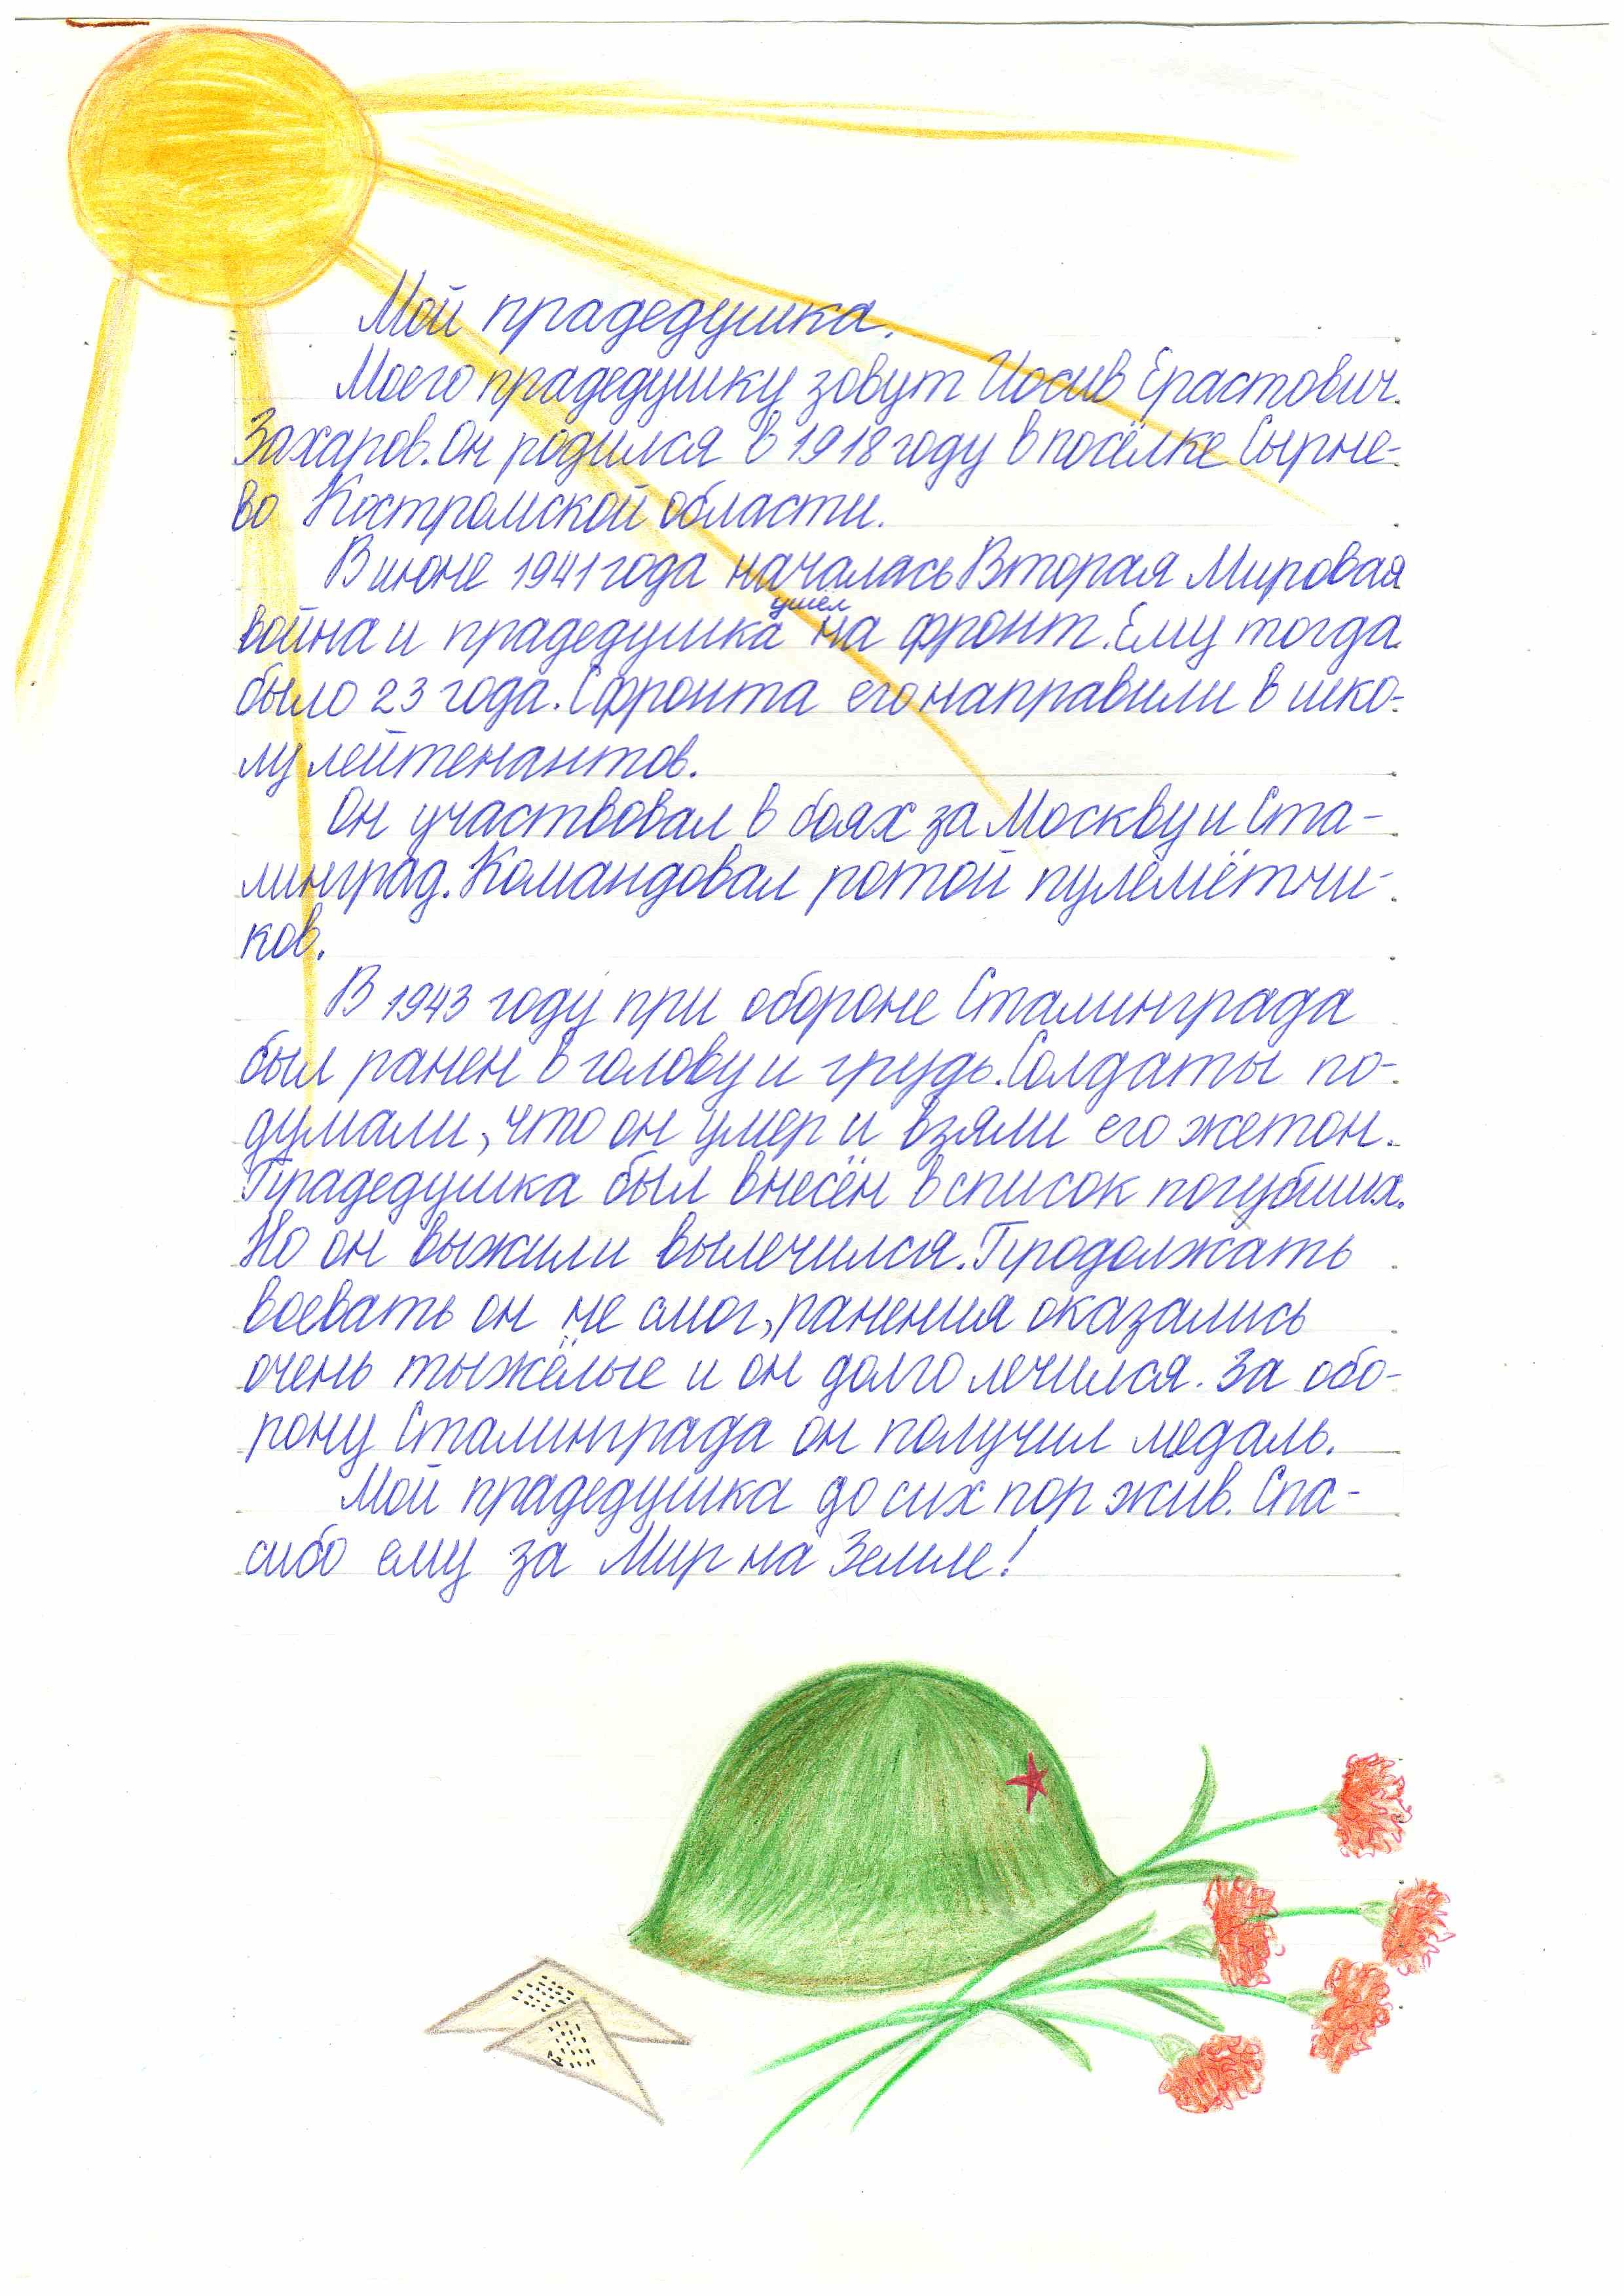 Мой прадедушка.
Моего прадедушку зовут Иосив Ерастович
Захаров. Он родился в 1918 году в посёлке Сырне-
во Костромской области.
В июне 1941 года началась Вторая Мировая
война и прадедушка ушёл на фронт. Ему тогда
было 23 года. С фронта его направили в шко-
лу лейтенантов.
Он участвовал в боях за Москву и Ста-
линград. Командовал ротой пулемётчи-
ков.
В 1943 году при обороне Сталинграда
был ранен в голову и грудь. Солдаты по-
думали, что он умер и взяли его жетон.
Прадедушка был внесён в список погубших.
Но он выжил и вылечился. Продолжать
воевать он не смог, ранения оказались
очень тыжёлые и он долго лечился. За обо-
рону Сталинграда он получил медаль.
Мой прадедушка до сих пор жив. Спа-
сибо ему за Мир на Земле!